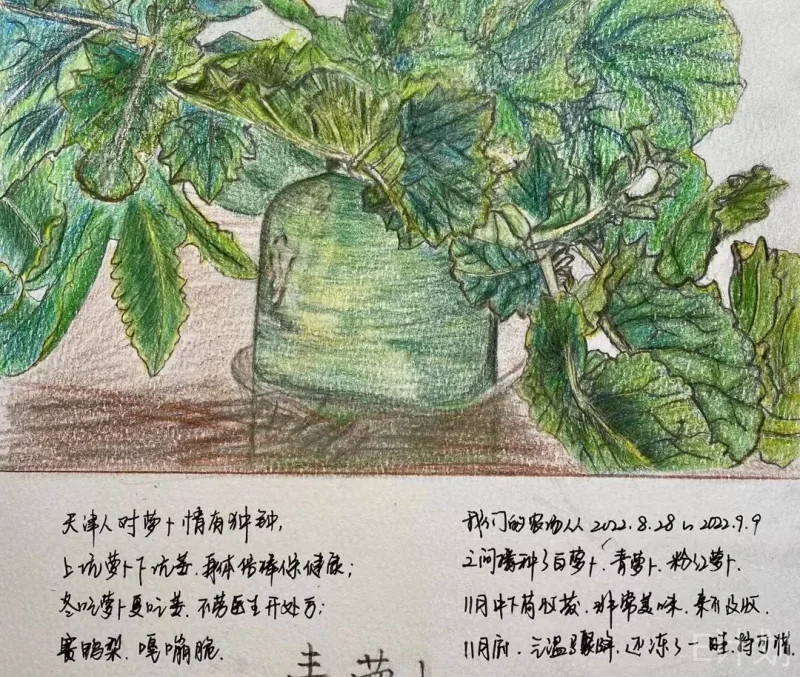 天津人对萝卜情有独钟,
上炕萝卜下炕姜.身体倍棒保健康;
冬吃萝卜夏吃姜.不劳医生开处方;
赛鸭梨.嘎嘣脆.
我们的农场从2022.8.28~2022.9.9
之间播种了白萝卜、青萝卜.粉红萝卜.
11月中下荀收获.非常美味.来不及收.
11月底.气温骤降.还冻了一畦.特可惜.
青萝卜